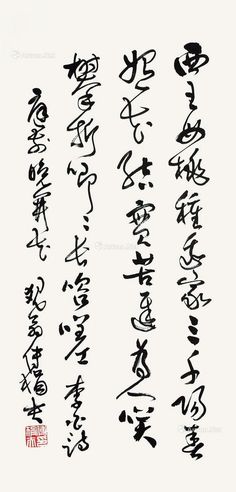 西王母桃種我家三千陽春
始一花結實苦遲為人笑
攀折唧々長咨嗟 李白詩
庭前晚開花 翁